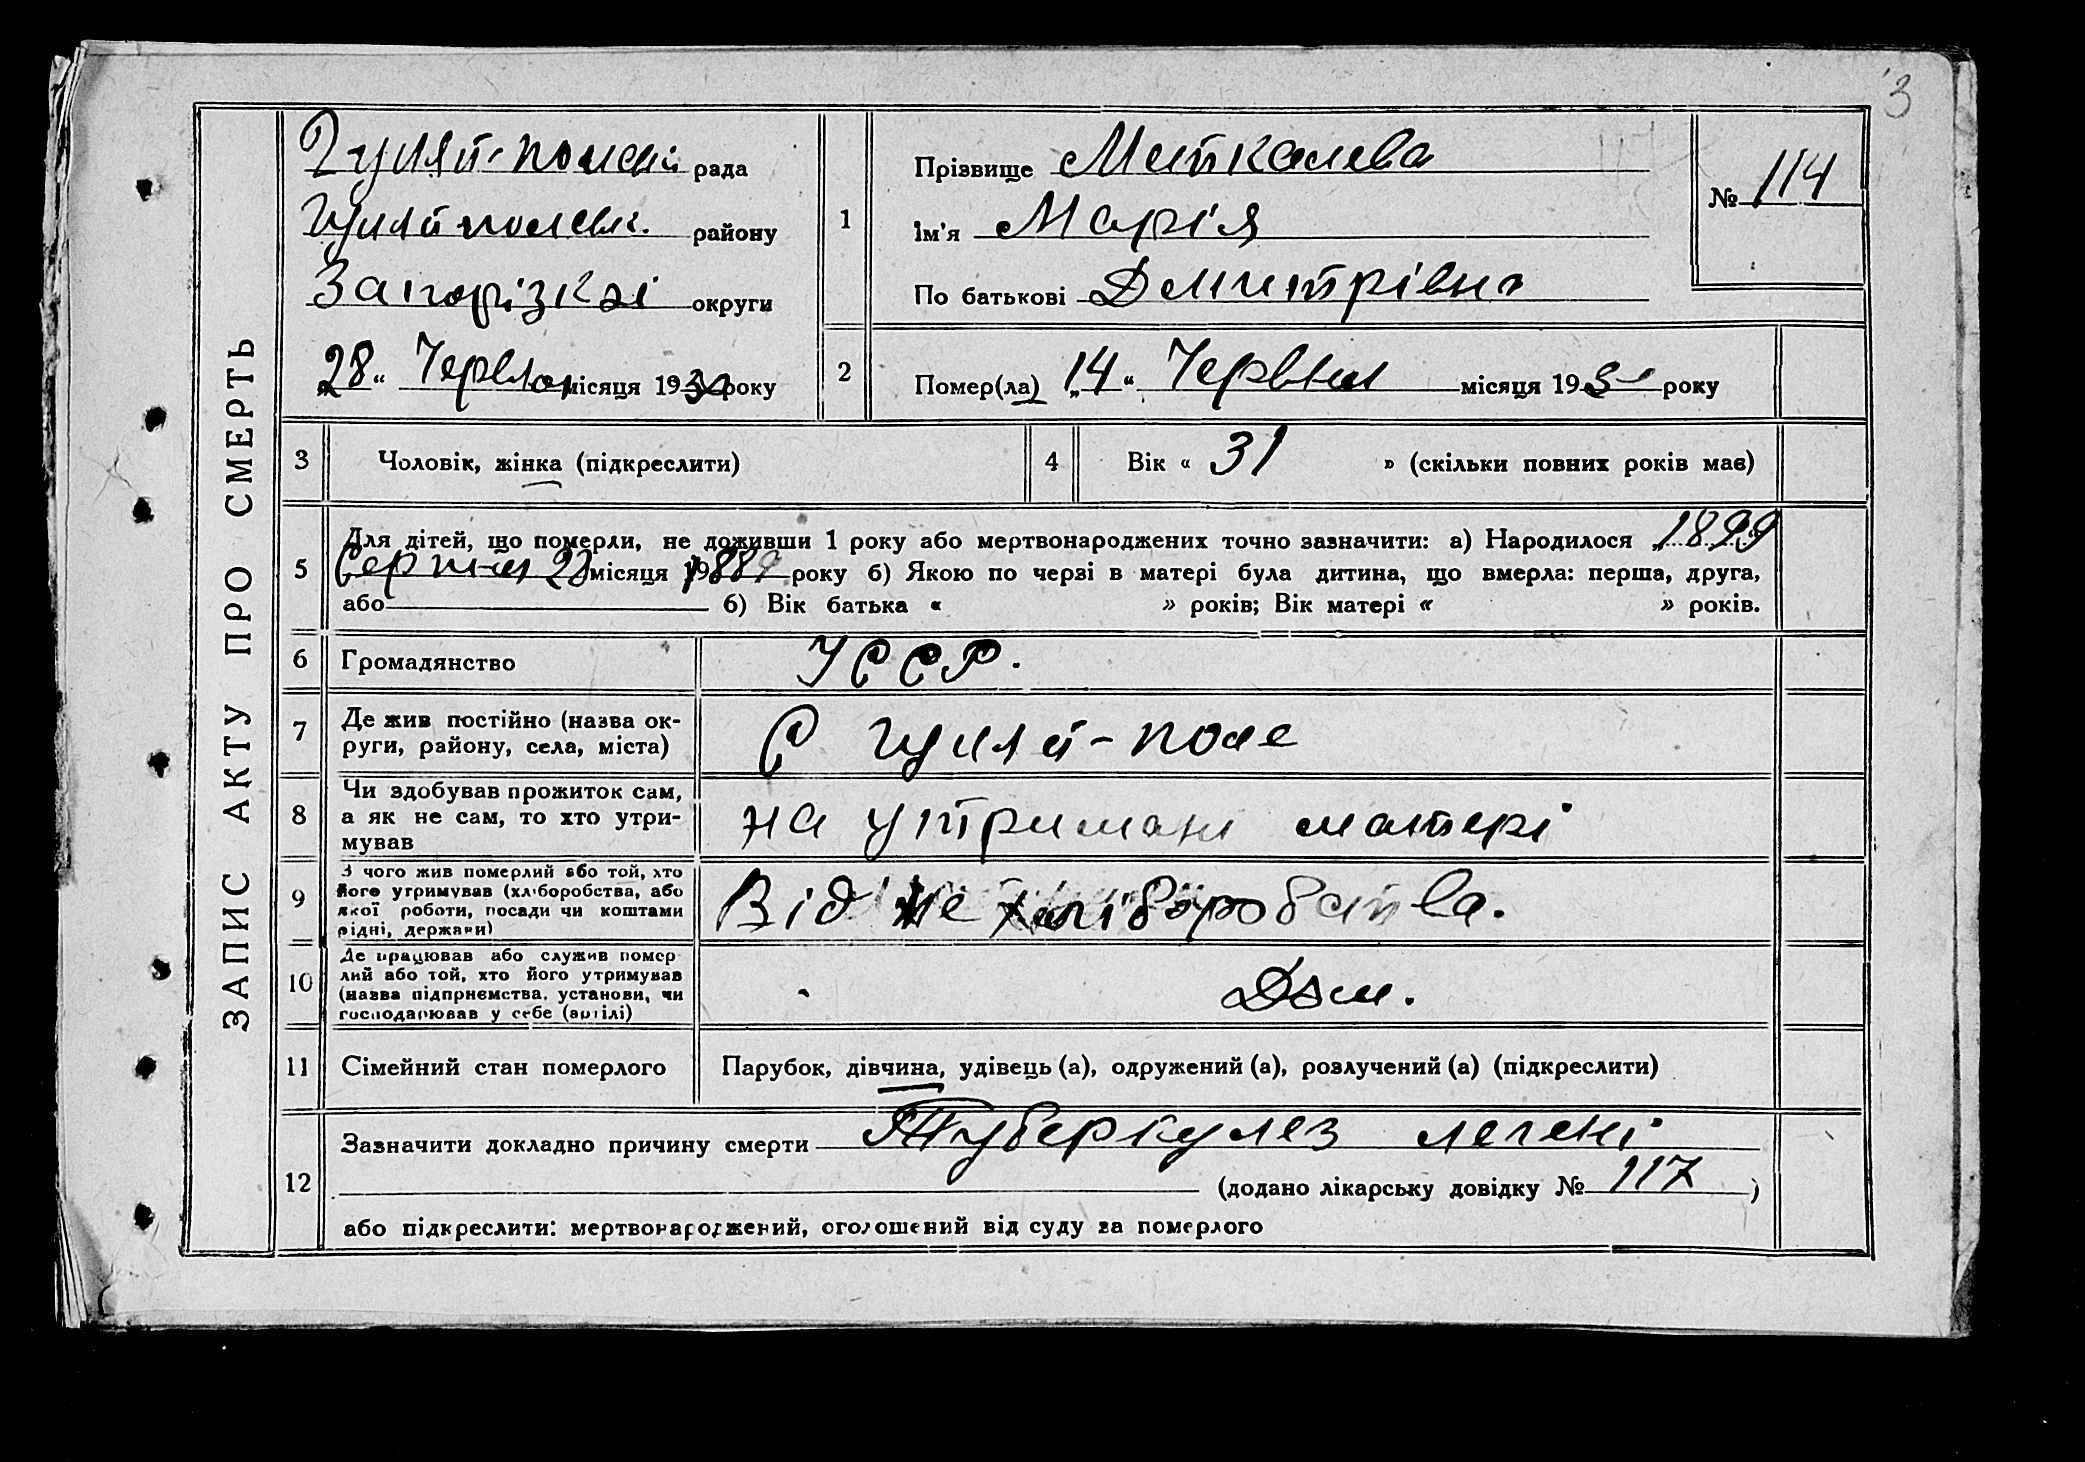 3
ЗАПИС АКТУ ПРО СМЕРТЬ
Гуляй-польськ рада
Гуляйпольськ. району
Запорізкої округи
„28“ Червня місяця 1930 року
1
Прізвище Миткалева
Ім'я Марія
По батькові Дмитрівна
№ 114
2
Помер(ла) „14“ Червня місяця 193 року
3 Чоловік, жінка (підкреслити)
4 Вік « 31 » (скільки повних років має)
5 Для дітей, що померли, не доживши 1 року або мертвонароджених точно зазначити: а) Народилося „1899
Серпня 28 місяця року б) Якою по черзі в матері була дитина, що вмерла: перша, друга,
або б) Вік батька « » років; Вік матері « » років.
6 Громадянство УССР.
7 Де жив постійно (назва ок-
руги, району, села, міста)
С Гуляй-поле
8 Чи здобував прожиток сам,
а як не сам, то хто утри-
мував
на утримані матері
9 З чого жив померлий або той, хто
його утримував (хліборобства, або
якої роботи, посади чи коштами
рідні, держави)
Від хліборобства.
10 Де працював або служив помер
лий або той, хто його утримував
(назва підприємства, установи, чи
господарював у себе (артілі)
Дом.
11 Сімейний стан померлого Парубок, дівчина, удівець (а), одружений (а), розлучений (а) (підкреслити)
12 Зазначити докладно причину смерти Туберкулез легені
(додано лікарську довідку № 117)
або підкреслити: мертвонароджений, оголошений від суду за померлого